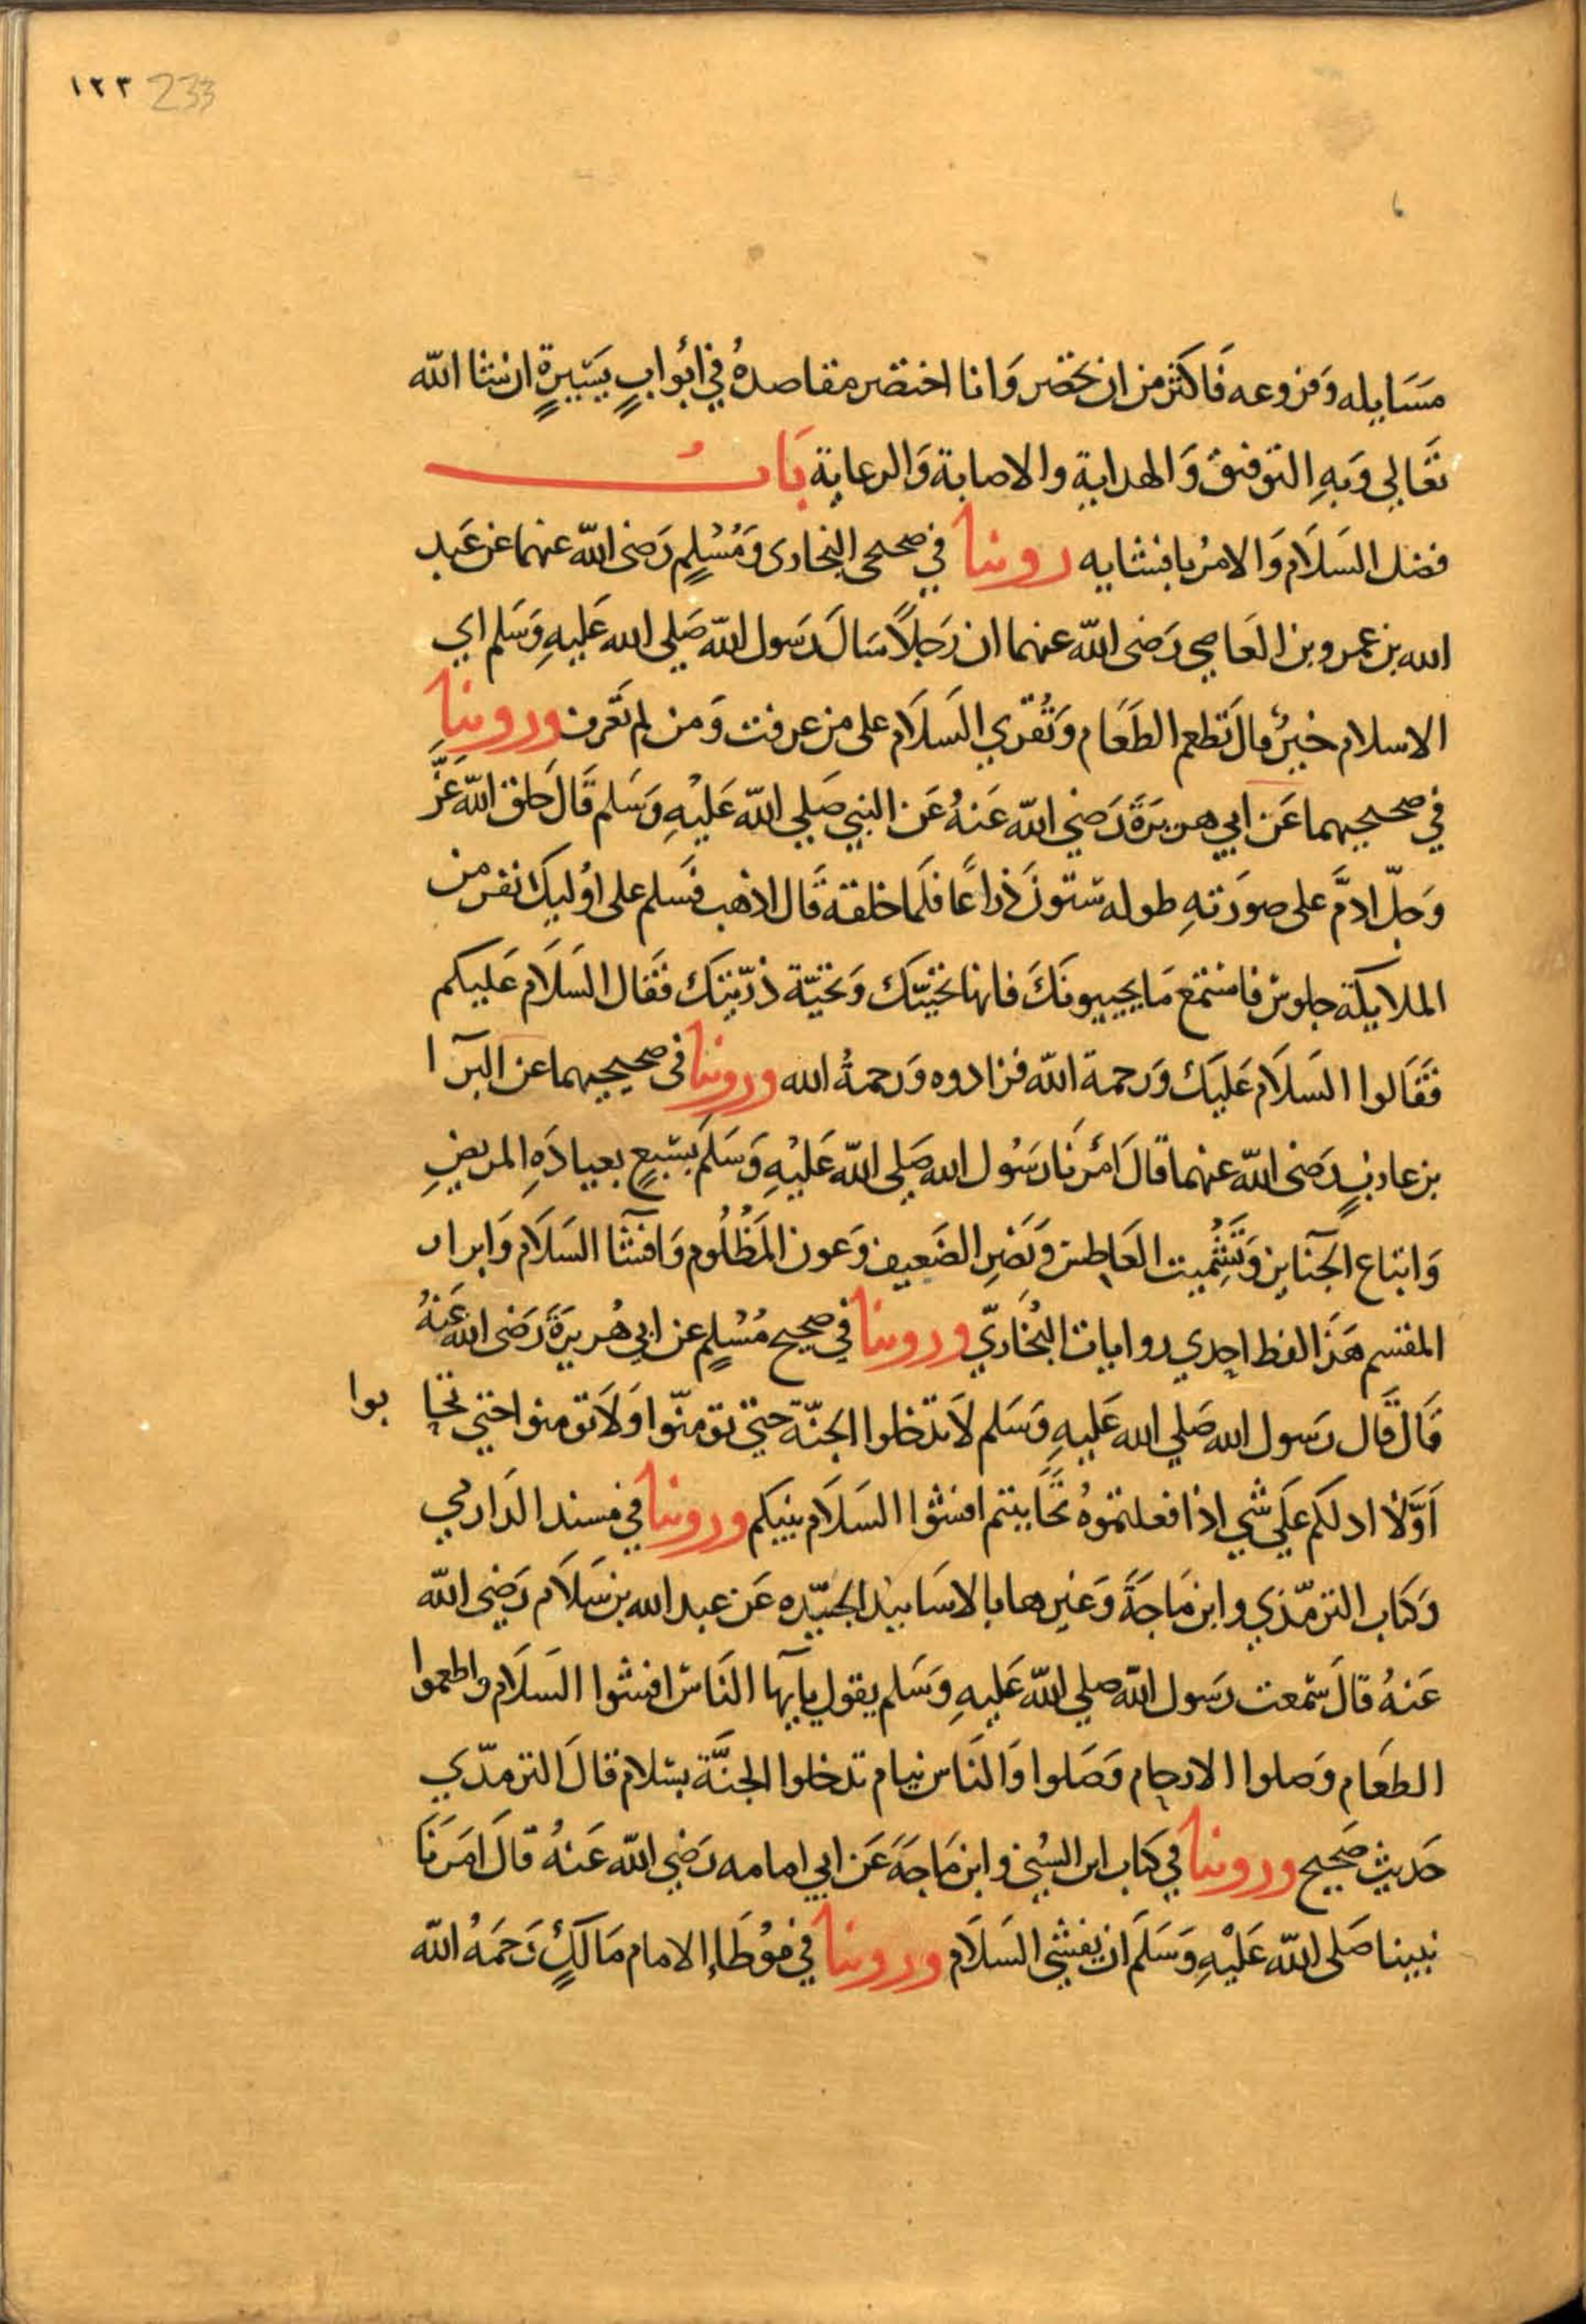 ١٢٣ 233
مَسَايله وَفروعه فَاكثر من ان تحصر وَانا اختصر مقاصدهُ في ابوابٍ يَسَيرةٍ ان شا الله
تعَالي وَبهِ التوفيق وَالهداية والاصابة وَالرعاية بَابُ
فضل السَلاَم وَالامرُ بافشايه روينا في صحيحي البخاري وَمُسْلِمٍ رَضى الله عنهما عن عَبد
الله بن عمرو بن العَاصي رَضى الله عنهما ان رَجلاً سَالَ رَسول الله صَلي الله عَليهِ وَسَلم اي
الاسلام خيرٌ قال تَطعم الطَعَام وَتُقري السَلاَم على من عرفت وَمن لم تَعرف وروينا
في صحيحيهما عَن ابي هريرَةَ رَضي الله عَنهُ عَن النبي صَلي الله عَليْهِ وَسَلم قَالَ خلق الله عَزَّ
وَجلّ ادمَ على صورَتهِ طوله ستّونَ ذراعًا فلَما خلقه قَال اذهب فسَلم على اوُليك نفر من
الملايكة جلوس فاستمع مَا يجيبونَكَ فانها تحيّتك وَتحيّة ذرّيتك فقَال السَلاَم عَليكم
فقَالوا السَلاَم عَليَك وَرَحمة الله فزادوه وَرَحمةُ الله وروينا في صحيحيهما عن البرآ ا
بن عازبٍ رَضى الله عنهما قالَ امَرنَا رَسُول الله صَلي الله عَليْهِ وَسَلَم بسَبعٍ بعيادَهِ المريضِ
وَاتباع الجَنايز وَتَشْمِيت العَاطس وَنَصْرِ الضَعيف وَعون المَظْلُوم وَافشآ السَلاَم وَابرار
المقسم هَذَ الفظ احدي روايات البُخَاريّ وروينا في صحيح مُسْلِم عن ابي هُريرَةَ رَضى الله عَنهُ
قَالَ قَال رَسول الله صَلي الله عَليهِ وَسَلم لاَ تدَخلوا الجنّة حتي تومنّوا وَلاَ تومنوا حتي تحا بوا
اَوَّلاْ ادلكم عَلَي شي اذا فعلتموُه تحَاببتم افشوا السَلاَم بينكم وروينا في مسند الدَارمي
وَكتاب الترمّذي وابن مَاجَةَ وَغيرهما بالاسَانيد الجيّده عَن عبد الله بن سَلاَم رَضِي الله
عَنهُ قالَ سَمعت رَسول الله صلي الله عَليهِ وَسَلم يقول يآيها النَاس افشوا السَلاَم واطعموا
الطعَام وَصلوا الارحام وَصَلوا وَالنَاس نيام تدخلوا الجنَّة بسَلام قالَ الترمذّي
حَديث صَحِيح وروينا في كتاب ابن السُني وابن مَاجَه عَن ابي امامه رَضي الله عَنهُ قالَ امَرَنَا
نبيينا صَلى الله عَليْهِ وَسَلَم ان نفشي السَلاَم وروينا في موُطَاإ الامام مَالكٍ رَحمَهُ الله